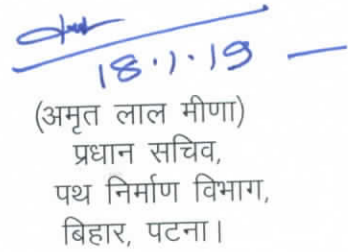 18.1.19
(अमृत लाल मीणा)
प्रधान सचिव,
पथ निर्माण विभाग,
बिहार, पटना।